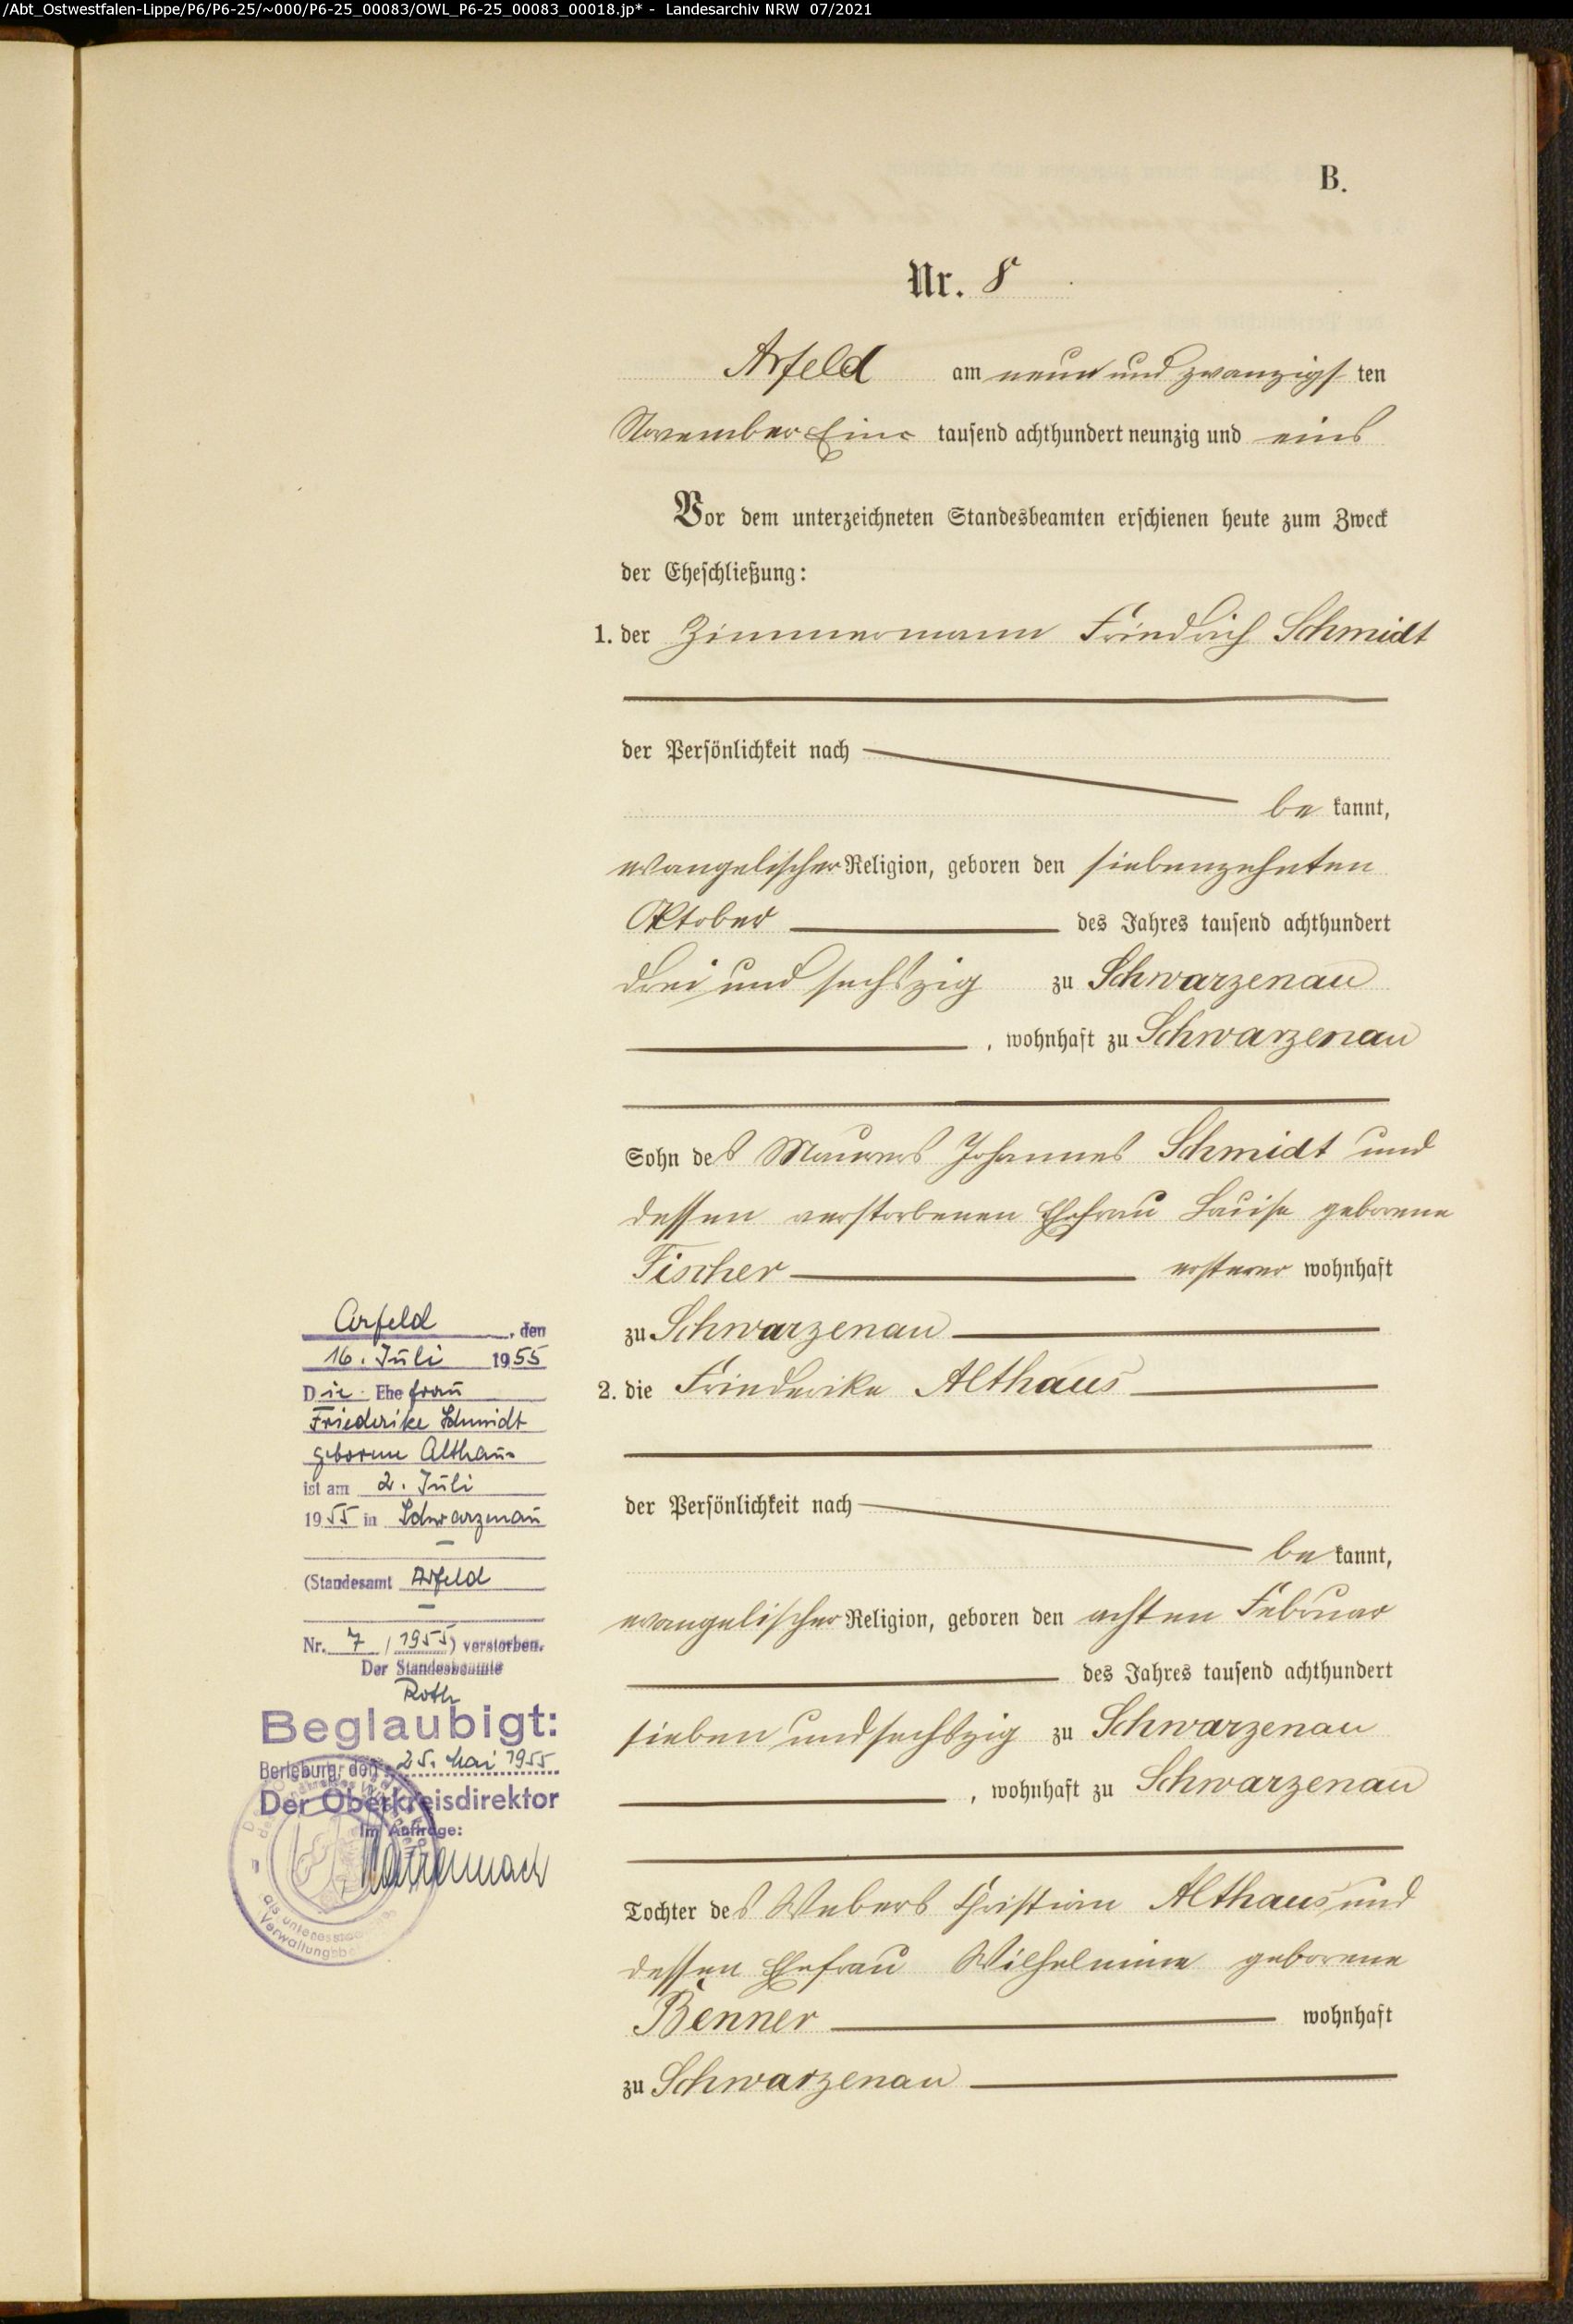 /Abt_Ostwestfalen-Lippe/P6/P6-25/~000/P6-25_00083/OWL_P6-25_00083_00018.jp* - Landesarchiv NRW 07/2021
B.
Nr. 8
Arfeld am neun und zwanzigsten
November Ein tausend achthundert neunzig und eins
Vor dem unterzeichneten Standesbeamten erschienen heute zum Zweck
der Eheschließung:
1. der Zimmermann Friedrich Schmidt
der Persönlichkeit nach
be kannt,
evangelischer Religion, geboren den siebenzehnten
Oktober des Jahres tausend achthundert
drei und sechszig zu Schwarzenau
, wohnhaft zu Schwarzenau
Sohn des Maurers Johannes Schmidt und
dessen verstorbenen Ehefrau Louise geborene
Fischer ersterer wohnhaft
zu Schwarzenau
2. die Friederike Althaus
der Persönlichkeit nach
be kannt,
evangelischer Religion, geboren den achten Februar
des Jahres tausend achthundert
sieben und sechszig zu Schwarzenau
, wohnhaft zu Schwarzenau
Tochter des Webers Christian Althaus und
dessen Ehefrau Wilhelmine geborene
Benner wohnhaft
zu Schwarzenau
Arfeld, den
16. Juli 1955
Die Ehefrau
Friederike Schmidt
geborene Althaus
ist am 2. Juli
1955 in Schwarzenau
(Standesamt Arfeld
Nr. 7 / 1955) verstorben.
Der Standesbeamte
Roth
Beglaubigt:
Berleburg, den 25. Mai 1955
Der Oberkreisdirektor
Im Auftrage:
als untere
Verwaltungsbe